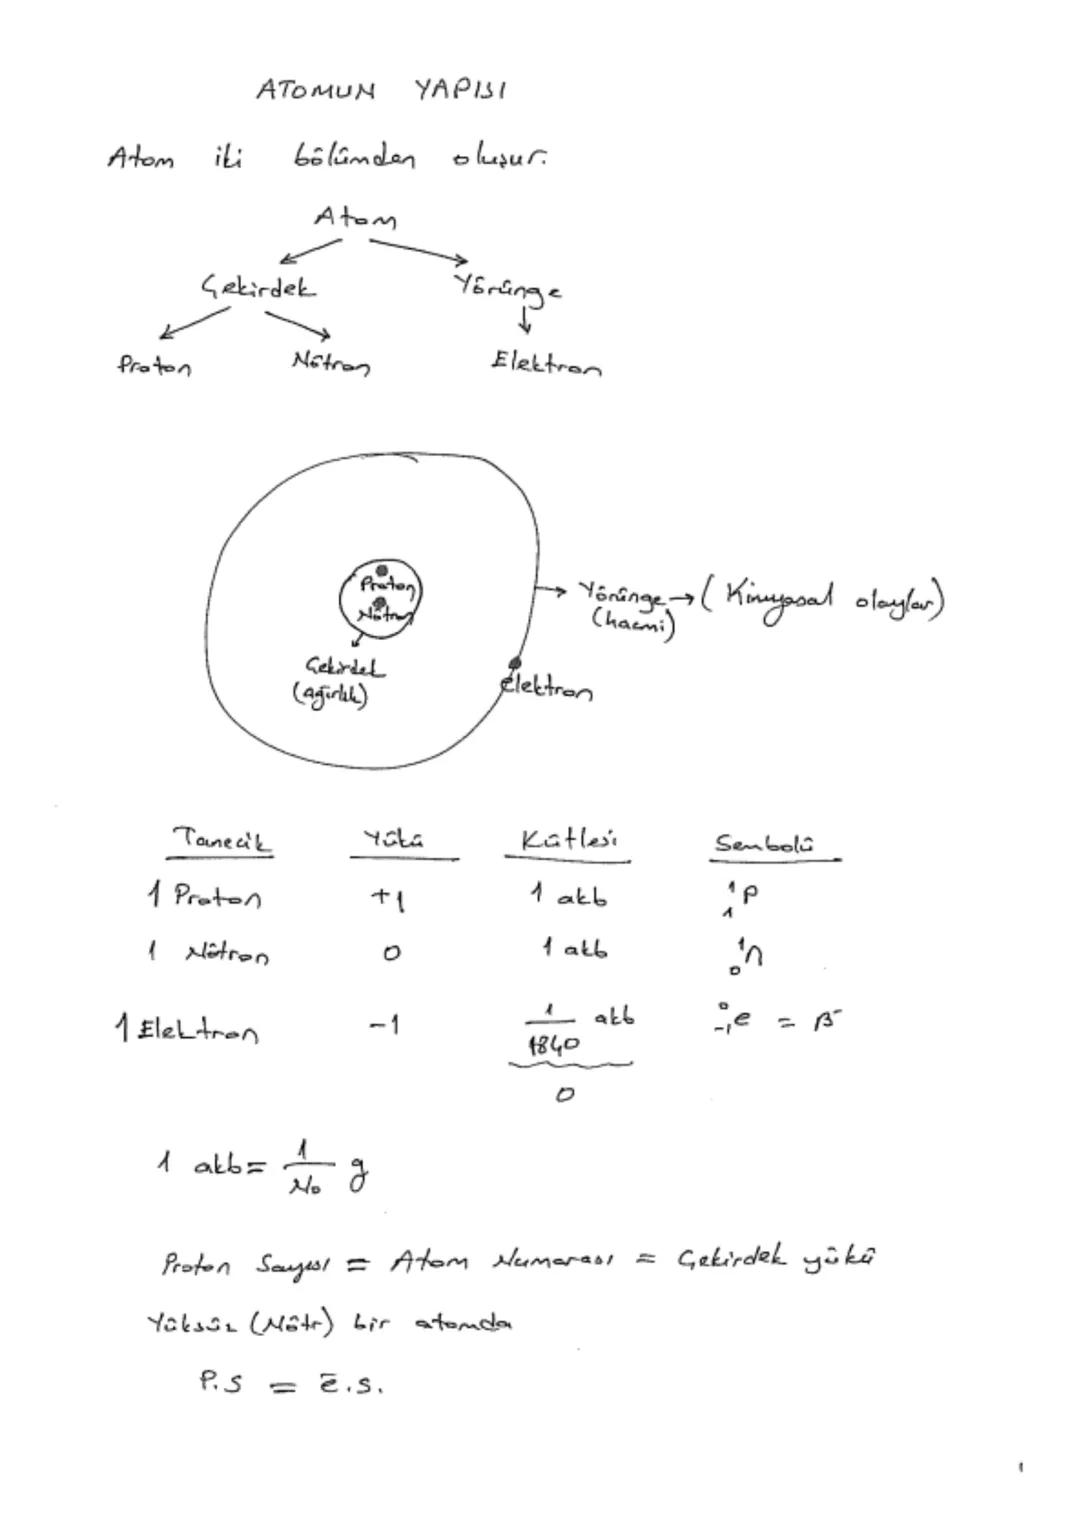 ATOMUN YAPISI
Atom iki bölümden oluşur.
Atom
Çekirdek Yörünge
Proton Nötron Elektron
Proton
Nötron
Yörünge → (Kimyasal olaylar)
(hacmi)
Çekirdek
(ağırlık)
elektron
Tanecik Yükü Kütlesi Sembolü
1 Proton +1 1 akb ¹₁P
1 Nötron 0 1 akb ¹₀n
1 Elektron -1 1/1840 akb ⁰₋₁e = β⁻
0
1 akb = 1/No g
Proton Sayısı = Atom Numarası = Çekirdek yükü
Yüksüz (Nötr) bir atomda
P.S = ē.s.
1